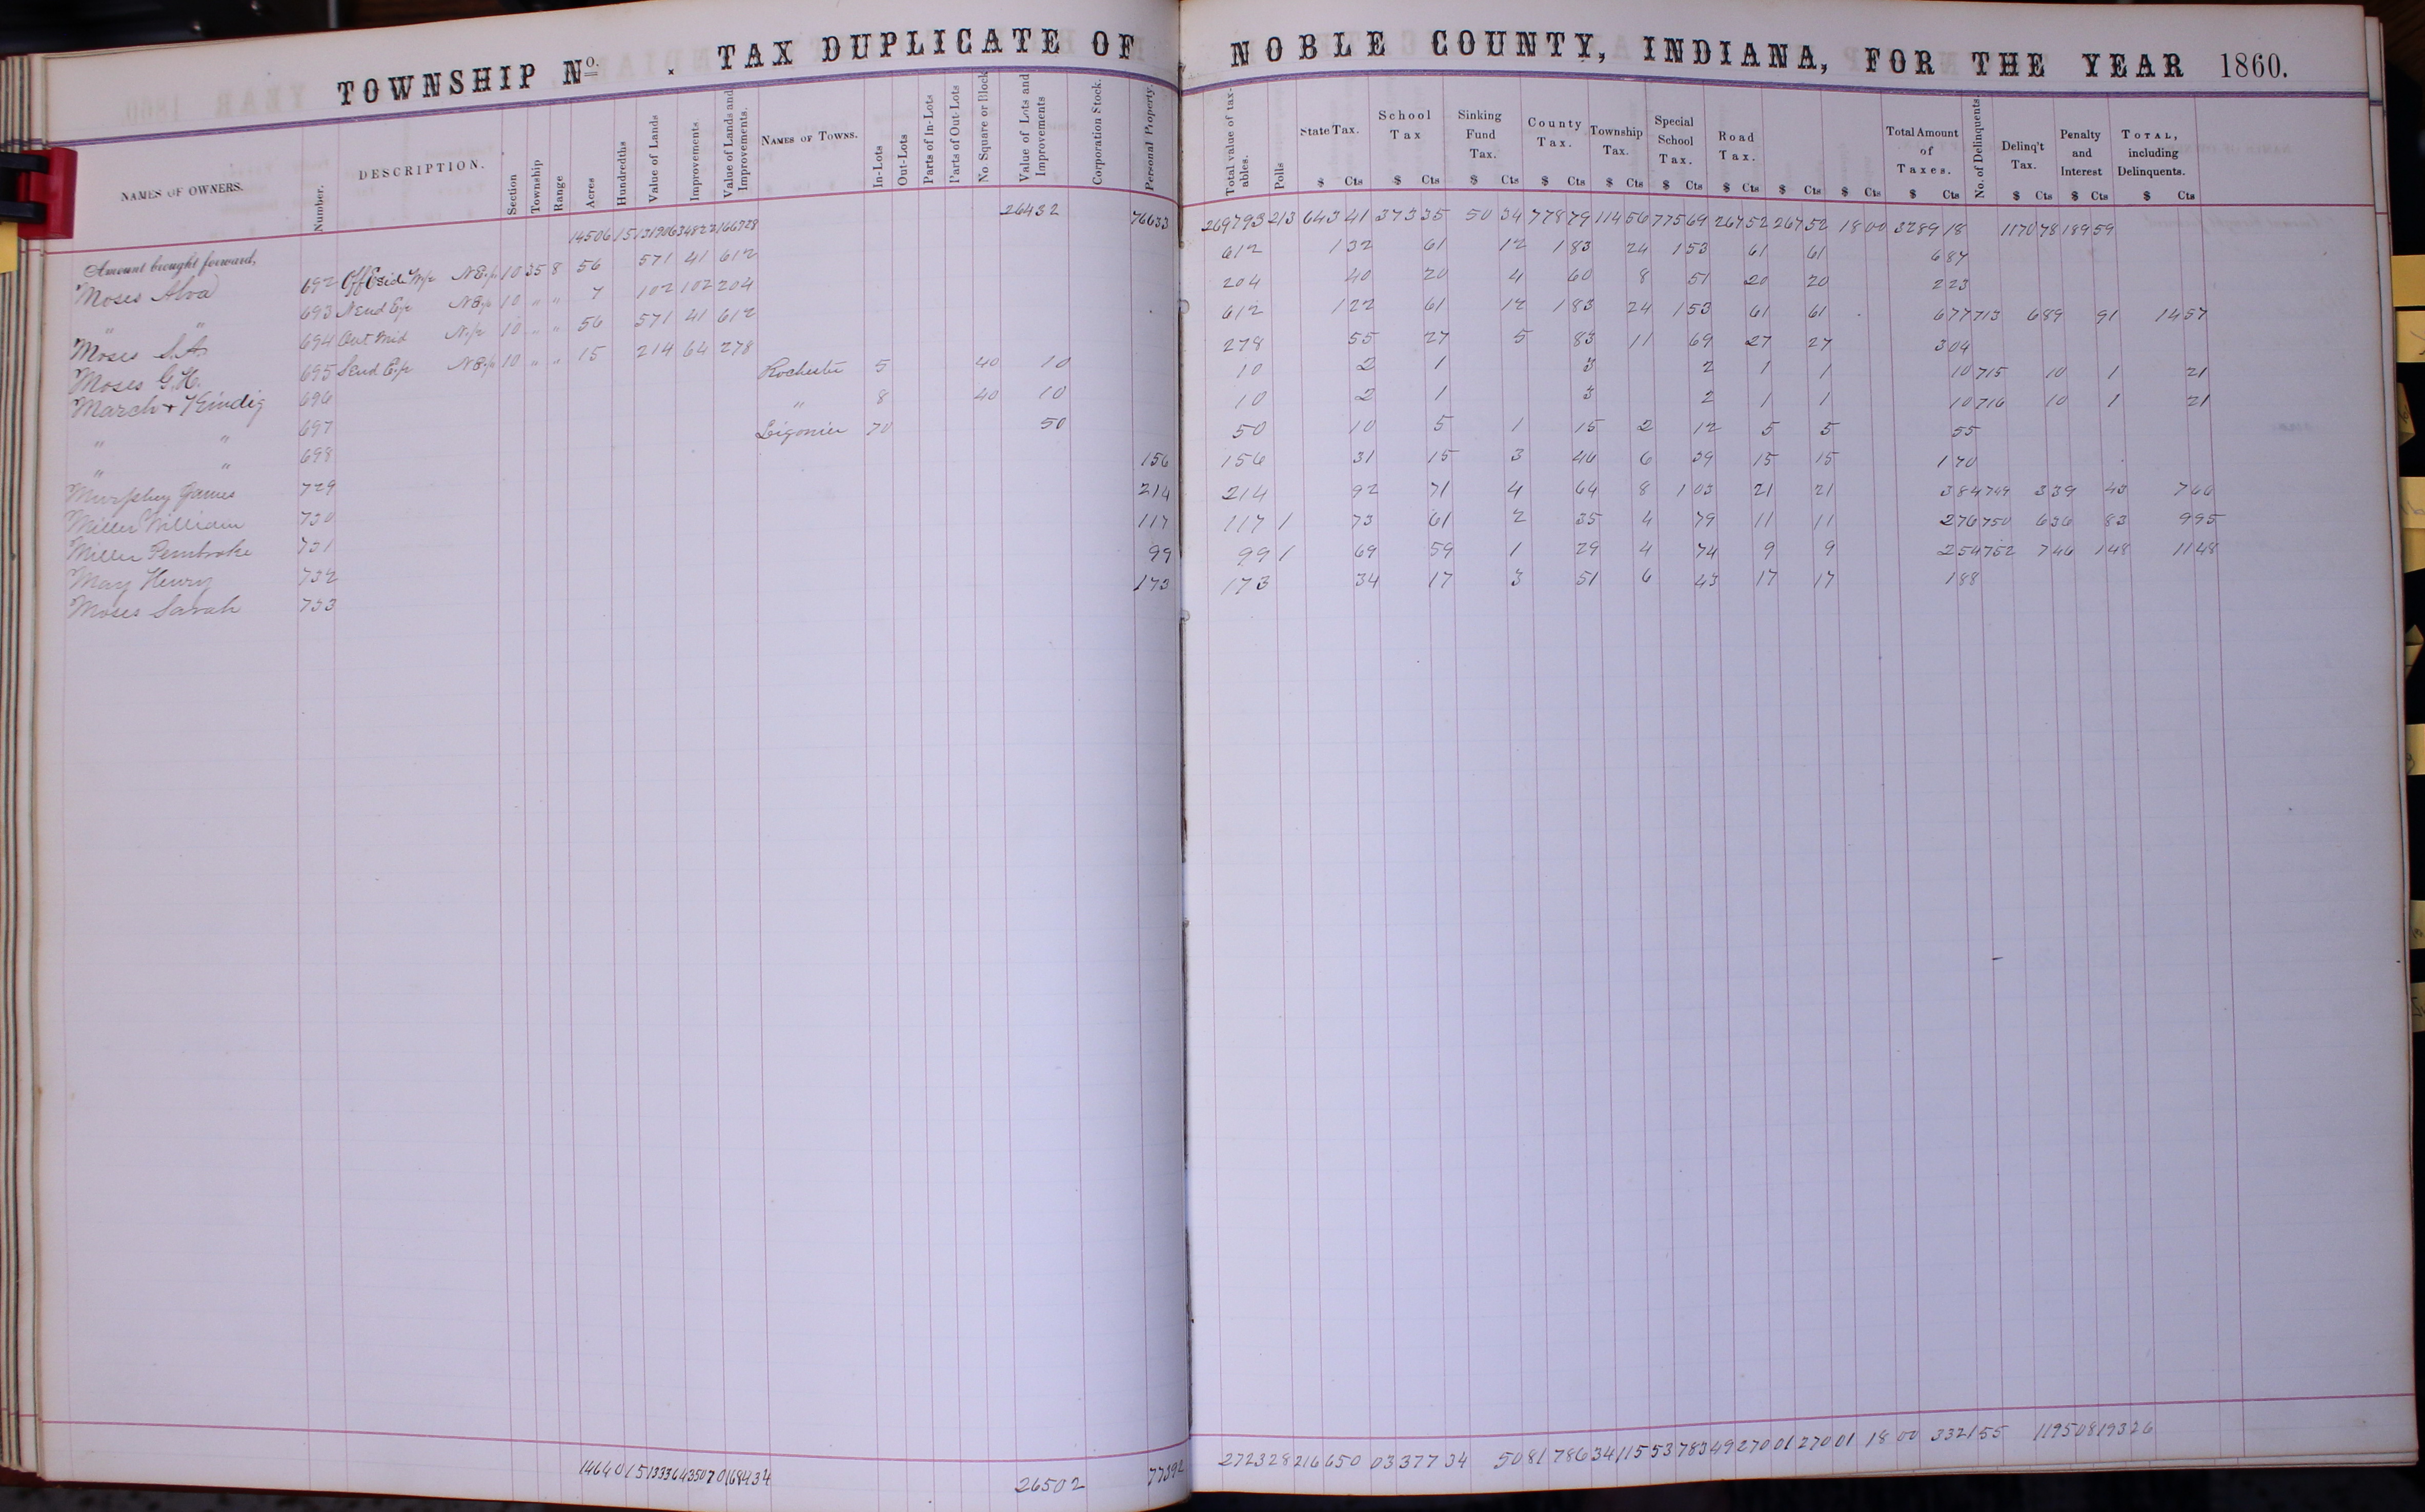 TOWNSHIP No. . TAX DUPLICATE OF NOBLE COUNTY, INDIANA, FOR THE YEAR 1860.
NAMES OF OWNERS. Number. DESCRIPTION. Section Township Range Acres Hundredths Value of Lands Improvements Value of Lands and Improvements. NAMES OF TOWNS. In-Lots Out-Lots Parts of In-Lots Parts of Out-Lots No Square or Block Value of Lots and Improvements Corporation Stock. Personal Property. Total value of tax-ables. Polls State Tax. School Tax Sinking Fund Tax. County Tax. Township Tax. Special School Tax. Road Tax. Total Amount of Taxes. No. of Delinquents Delinq't Tax. Penalty and Interest TOTAL, including Delinquents.
$ Cts $ Cts $ Cts $ Cts $ Cts $ Cts $ Cts $ Cts $ Cts $ Cts $ Cts $ Cts $ Cts
Amount brought forward, 14506 15 131906 34822 166728 26432 76633 269793 213 643 41 373 35 50 34 778 79 114 56 775 69 267 52 267 52 18 00 3289 18 1170 78 189 59
Moses Alva 692 Off E side W/p N E/p 10 35 8 56 571 41 612 612 1 32 61 12 1 83 24 1 53 61 61 6 87
" " 693 N end E/p N E/p 10 " " 7 102 102 204 204 40 20 4 60 8 51 20 20 2 23
Moses S. A. 694 Out Mid N/p 10 " " 56 571 41 612 612 1 22 61 12 1 83 24 1 53 61 61 6 77 713 6 89 91 14 57
Moses G. H. 695 S end E/p N E/p 10 " " 15 214 64 278 278 55 27 5 83 11 69 27 27 3 04
March & Kindig 696 Rochester 5 40 10 10 2 1 3 2 1 1 10 715 10 1 21
" " 697 " 8 40 10 10 2 1 3 2 1 1 10 716 10 1 21
" " 698 Ligonier 70 50 50 10 5 1 15 2 12 5 5 55
Murphey James 729 156 156 31 15 3 46 6 39 15 15 1 70
Miller William 730 214 214 92 71 4 64 8 1 03 21 21 3 84 749 3 39 43 7 66
Miller Pembroke 731 117 117 1 73 61 2 35 4 79 11 11 2 76 750 6 36 83 9 95
May Henry 732 99 99 1 69 59 1 29 4 74 9 9 2 54 752 7 46 1 48 11 48
Moses Sarah 733 173 173 34 17 3 51 6 43 17 17 1 88
14640 15 133364 35070 168434 26502 77392 272328 216 650 03 377 34 50 81 786 34 115 53 783 49 270 01 270 01 18 00 3321 55 1195 08 193 26